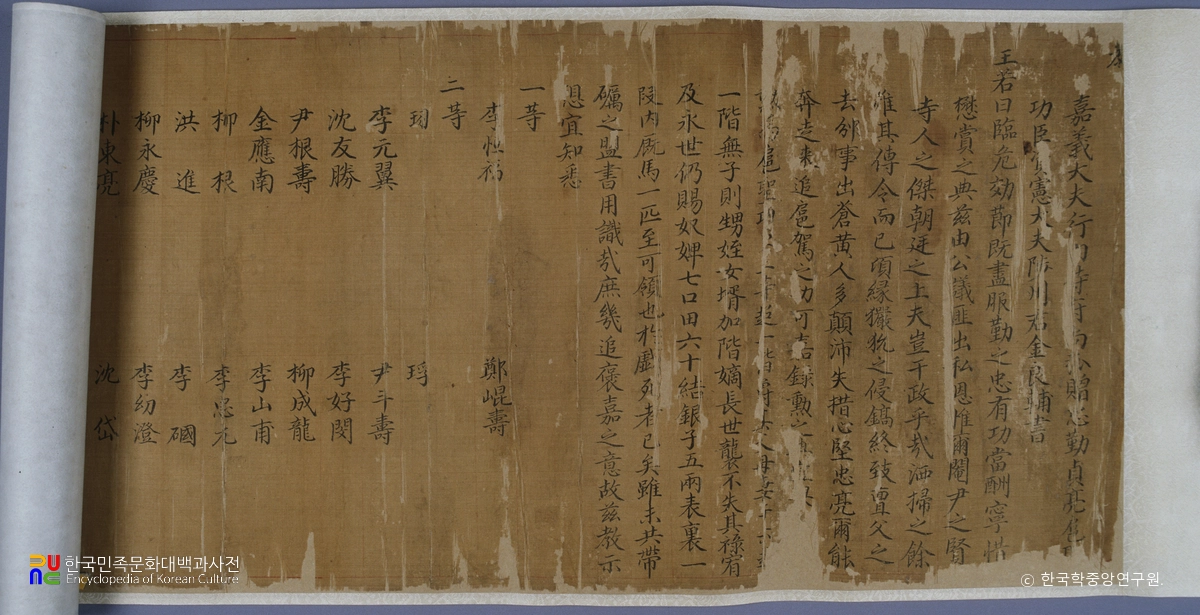 嘉義大夫行內侍府尙弧贈忠勤貞亮
功臣憲大夫陟川君金良輔書
王若曰臨危効節既盡服勤之忠有功當酬寧惜
懋賞之典茲由公議匪出私恩惟爾閹尹之賢
寺人之傑朝廷之上夫豈干政乎哉洒掃之餘
惟其傳令而已頃緣玁狁之侵鎬終致亶父之
去邠事出蒼黃人多顚沛失措心堅忠亮爾能
奔走來追扈駕之功可嘉錄勳之
扈聖功臣二等超一階爵其父母妻子
一階無子則甥姪女壻加階嫡長世襲不失其祿宥
及永世仍賜奴婢七口田六十結銀子五兩表裏一
段內廐馬一匹至可領也於戲死者已矣雖未共帶
礪之盟書用識哉庶幾追褒嘉之意故茲敎示
想宜知悉
一等
李恒福 鄭崐壽
二等
珝 琈
李元翼 尹斗壽
沈友勝 李好閔
尹根壽 柳成龍
金應南 李山甫
柳根 李忠元
洪進 李磶
柳永慶 李幼澄
朴東亮 沈岱
한국민족문화대백과사전
Encyclopedia of Korean Culture
© 한국학중앙연구원.